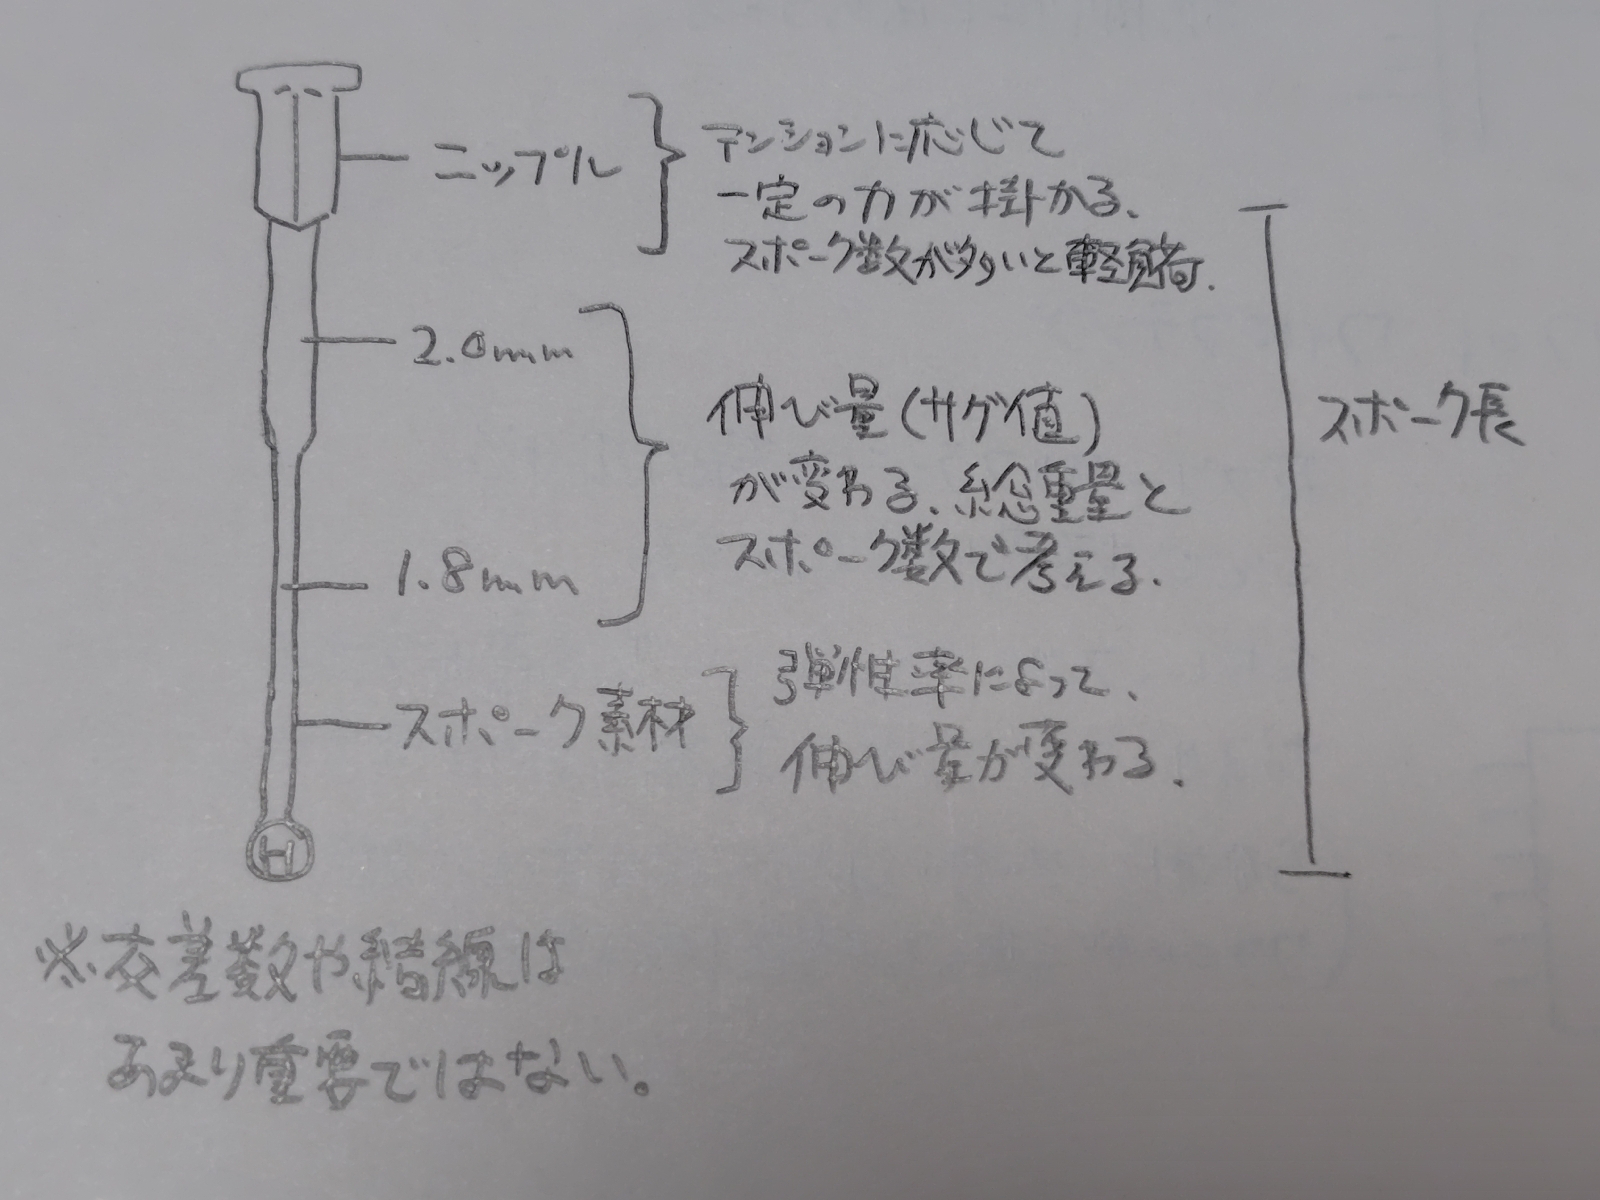 ニップル
テンションに応じて
一定の力が掛かる、
スポーク数が多いと軽負荷.
2.0mm
1.8mm
伸び量(サグ値)
が変わる、総重量と
スポーク数で考える.
スポーク素材
弾性率によって、
伸び量が変わる.
スポーク長
H
※交差数や結線は
あまり重要ではない。